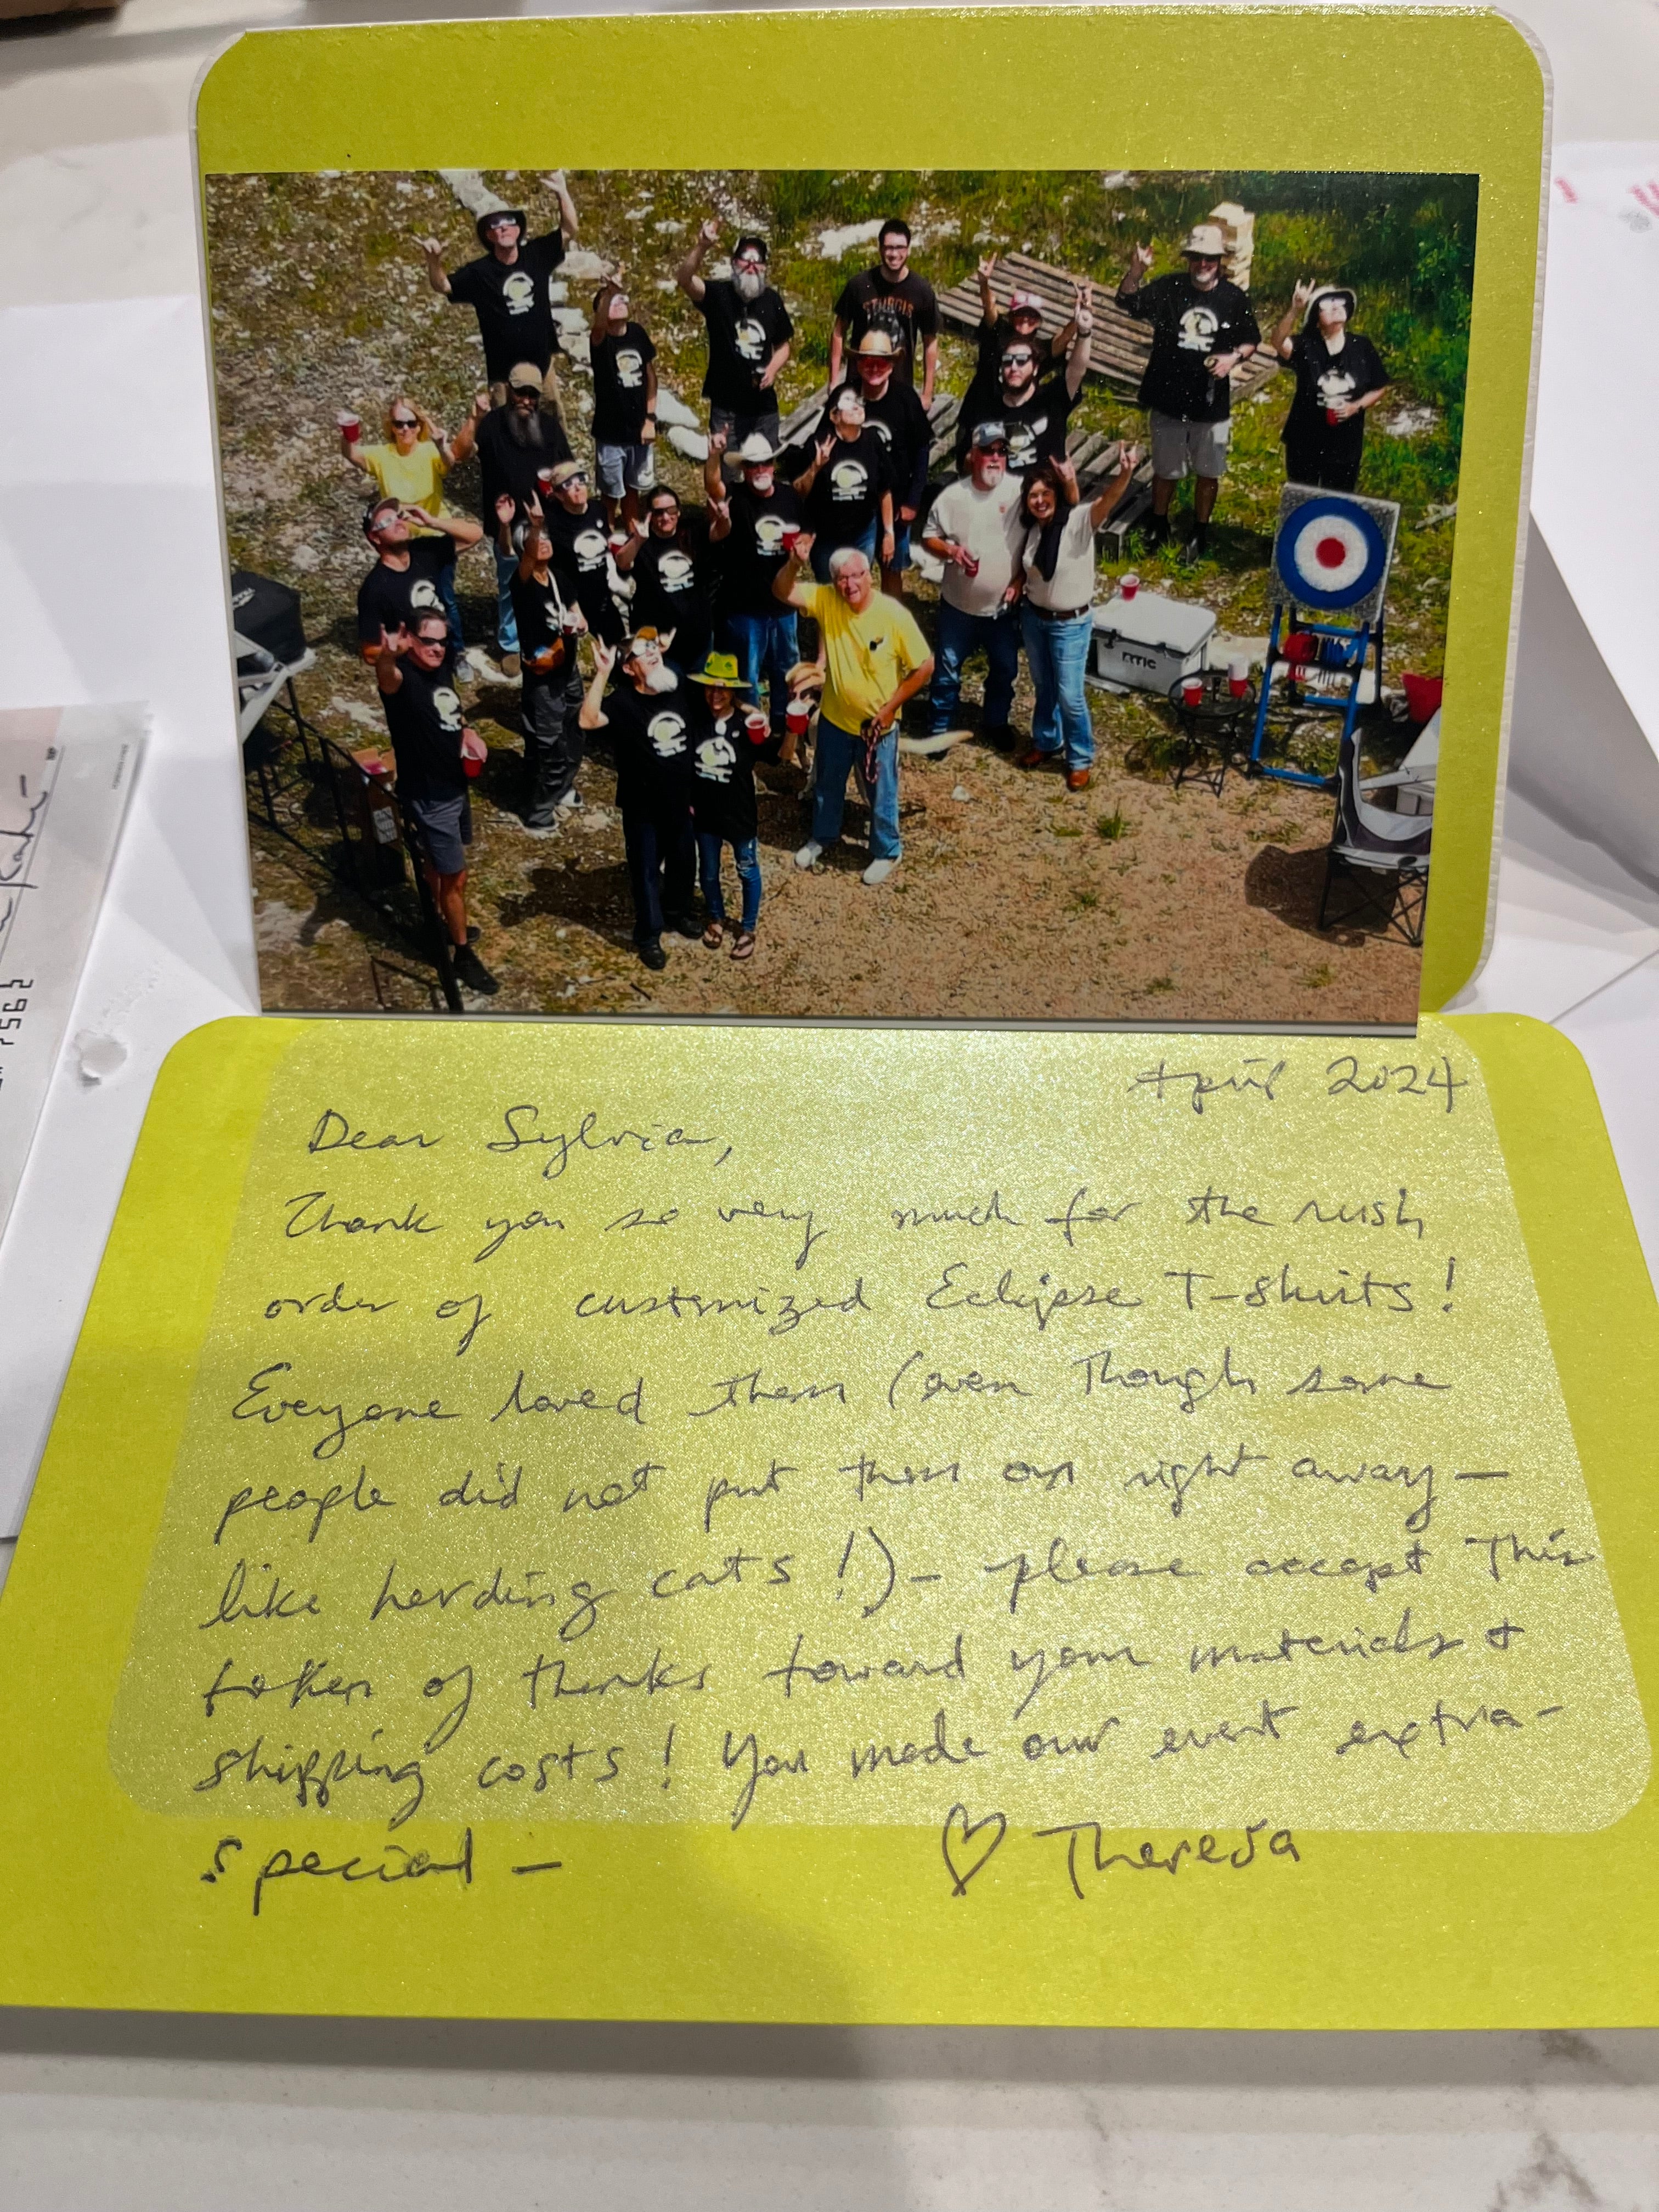 STURGIS
RTIC
April 2024
Dear Sylvia,
Thank you so very much for the rush
order of customized Eclipse T-shirts!
Everyone loved them (even though some
people did not put them on right away—
like herding cats!)— please accept this
token of thanks toward your materials +
shipping costs! You made our event extra-
special —
♡ Theresa